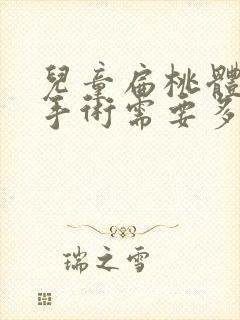 兒童扁桃體
手術需要多
瑞之雪